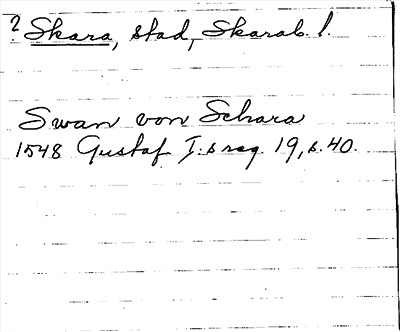 ? Skara, stad, Skarab. l.
Swan von Schara
1548 Gustaf I:s reg. 19, s. 40.